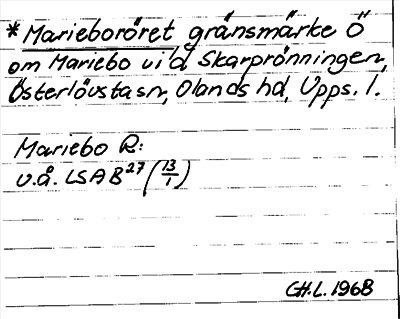 *Marieboröret gränsmärke Ö
om Mariebo vid Skarprönningen,
Österlövsta sn, Olands hd, Upps. l.
Mariebo R:
v.å. LSA B²⁷ (13/1)
CH.L. 1968